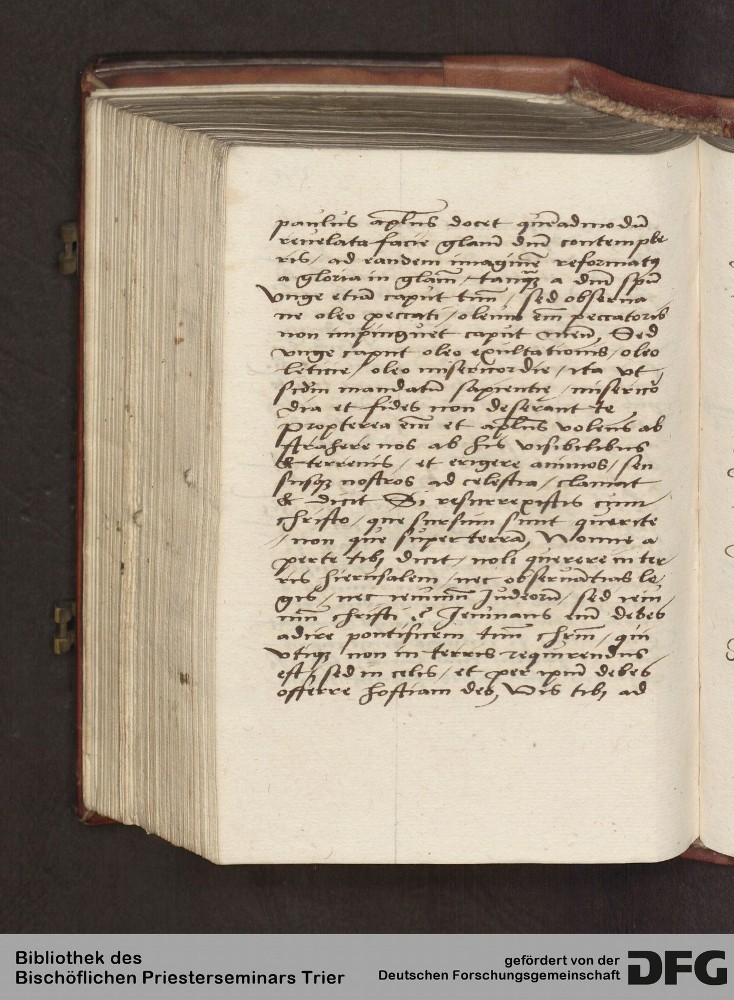 paulus aplūs docet quēadmodū
reuelata facie glam̄ dn̄i contemple
ris / ad eandem imaginē reformatꝰ
a gloria in glam̄ / tanqꝫ a dn̄i spū
Vnge etiā caput tuū / sed obserua
ne oleo peccati / oleum em̄ peccatoris
non impinguet caput meū, Sed
vnge caput oleo exultationis / oleo
leticie / oleo misericordie / ita vt /
scdm̄ mandatū sapientie / miserico
dia et fides non deserant te
Propterea em̄ et aplūs volens ab
strahere nos ab his visibilibus
& terrenis / et erigere animos / sen
susqꝫ nostros ad celestia / clamat
& dicit Si resurrexistis cum
christo / que sursum sunt querite
/ non que super terrā, Nonne a
perte tibi dicit / noli querere in ter
ris hierusalem / nec obseruantias le
gis / nec ieiuniū Judeorū / sed ieiu
niū christi ē Jeiunans em̄ debes
adire pontificem tuū chrm̄ / qui
vtiqꝫ non in terris requirendus
est / sed in celis / et per ip̄m debes
offerre hostiam deo, Vis tibi ad
Bibliothek des
Bischöflichen Priesterseminars Trier
gefördert von der
Deutschen Forschungsgemeinschaft
DFG